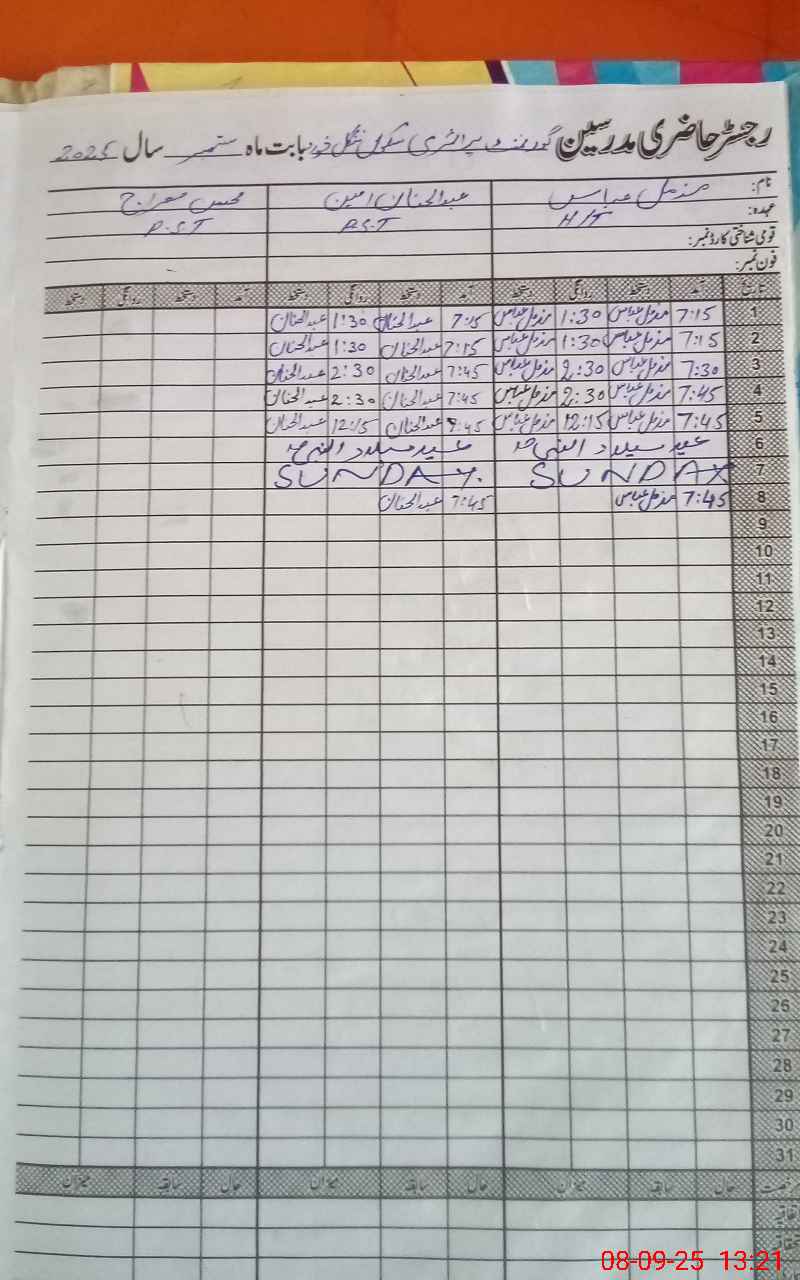 رجسٹر حاضری مدرسین گورنمنٹ پرائمری سکول بابت ماہ ستمبر سال 2025
نام: مزمل عباس عبدالحنان امین محسن معراج
عہدہ: H/T P.S.T P.S.T
قومی شناختی کارڈ نمبر:
فون نمبر:
تاریخ آمد دستخط روانگی دستخط آمد دستخط روانگی دستخط آمد دستخط روانگی دستخط
1 7:15 مزمل عباس 1:30 مزمل عباس 7:15 عبدالحنان 1:30 عبدالحنان
2 7:15 مزمل عباس 1:30 مزمل عباس 7:15 عبدالحنان 1:30 عبدالحنان
3 7:30 مزمل عباس 2:30 مزمل عباس 7:45 عبدالحنان 2:30 عبدالحنان
4 7:45 مزمل عباس 2:30 مزمل عباس 7:45 عبدالحنان 2:30 عبدالحنان
5 7:45 مزمل عباس 12:15 مزمل عباس 7:45 عبدالحنان 12:15 عبدالحنان
6 عید میلاد النبی عید میلاد النبی
7 SUNDAY SUNDAY
8 7:45 مزمل عباس 7:45 عبدالحنان
9
10
11
12
13
14
15
16
17
18
19
20
21
22
23
24
25
26
27
28
29
30
31
رخصت حال سابقہ میزان حال سابقہ میزان حال سابقہ میزان
اتفاقیہ
08-09-25 13:21